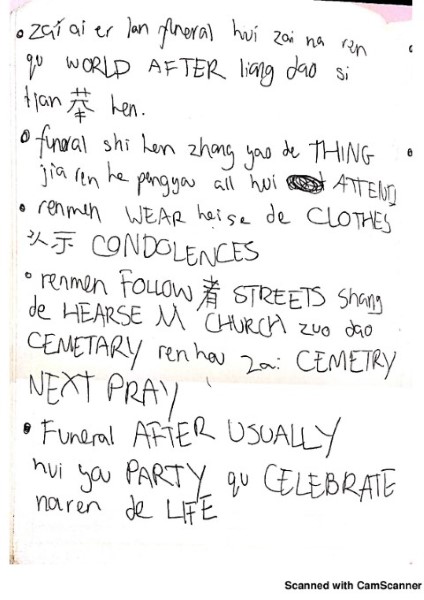 • zai ai er lan funeral hui zai na ren
qu WORLD AFTER liang dao si
tian 举 hen.
• funeral shi hen zhong yao de THING
jia ren he pengyou all hui ATTEND
• renmen WEAR heise de CLOTHES
以示 CONDOLENCES
• renmen FOLLOW 着 STREETS shang
de HEARSE 从 CHURCH zuo dao
CEMETARY ren hou zai CEMETRY
NEXT PRAY
• Funeral AFTER USUALLY
hui you PARTY qu CELEBRATE
naren de LIFE
Scanned with CamScanner